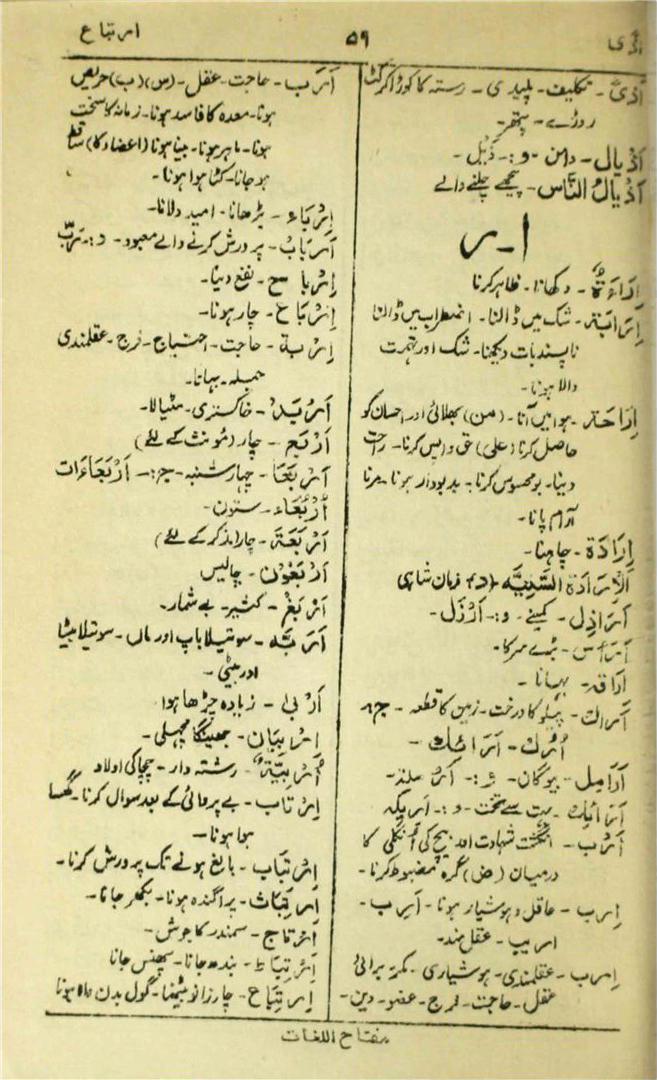 اذٰی ۵۹ ارتباع
اَذًی - تکلیف - پلیدی - رستہ کا کوڑا کرکٹ
روڑے - پتھر -
اَذْیال - دامن - و:- ذَیل -
اَذْیالُ النَّاس - پیچھے چلنے والے
ا - ر
اِرَاءَۃٌ - دکھانا - ظاہر کرنا
اِرَابَۃ - شک میں ڈالنا - اضطراب میں ڈالنا
ناپسند بات دیکھنا - شک اور تہمت
والا ہونا -
اِرَاحَۃ - ہوا میں آنا - (من) بھلائی اور احسان کو
حاصل کرنا (علیٰ) حق واپس کرنا - راحت
دینا - بو محسوس کرنا - بدبودار ہونا - مرنا
آرام پانا -
اِرَادَۃ - چاہنا -
اَلْاِرَادَۃ السَّنِیَّه - (د) فرمان شاہی
اَرَاذِل - کمینے - و:- اَرْذَل -
اَرْأس - بڑے سر کا -
اراقہ - بہانا -
اَرَاك - پیلو کا درخت - زمین کا قطعہ - ج:
اُرُك - اَرَائك -
اَرَامِل - بیوگان - و: - اَرْملة -
اَرَائِك - بہت سے تخت - و:- اَرِیکه
اَرْب - انگشت شہادت اور بیچ کی انگلی کا
درمیان (ض) گرہ مضبوط کرنا -
اِرب - عاقل و ہوشیار ہونا - اَرِب -
اریب - عقل مند -
اِرب - عقلمندی - ہوشیاری - مکر - برائی
عقل - حاجت - فرج - عضو - دین -
اَرَب - حاجت - عقل - (س) (ب) حریص
ہونا - معدہ کا فاسد ہونا - زمانہ کا سخت
ہونا - ماہر ہونا - بینا ہونا (اعضاء کا) ساقط
ہو جانا - کٹا ہوا ہونا -
اِرْبَاء - بڑھانا - امید دلانا -
اَرْبَابُ - پرورش کرنے والے معبود - و:- رَبّ
اِرْبَاح - نفع دینا -
اِرْبَاع - چار ہونا -
اِرْبة - حاجت - احتیاج - فرج - عقلمندی
حیلہ - بہانا -
اَرْبَدُ - خاکستری - مٹیالا -
اَرْبَع - چار (مؤنث کے لئے)
اَرْبَعَا - چہار شنبہ - ج:- اَرْبَعَاءَات
اُرْبُعَاء - ستون -
اَرْبَعَة - چار (مذکر کے لئے)
اَرْبَعُوْن - چالیس
اَرْبَغ - کثیر - بے شمار -
اَرَبَّه - سوتیلا باپ اور ماں - سوتیلا بیٹا
اور بیٹی -
اَرْبٰی - زیادہ چڑھا ہوا
اربیان - جھینگا مچھلی -
اُرْبِیَّة - رشتہ دار - چچا کی اولاد
اِرْتاب - بے پروائی کے بعد سوال کرنا - گھسا
ہوا ہونا -
اِرْتِبَاب - بالغ ہونے تک پرورش کرنا -
اِرْتِبَاث - پراگندہ ہونا - بکھر جانا -
اَرْتاج - سمندر کا جوش -
اِرْتِبَاط - بندھ جانا - پھنس جانا
اِرْتِبَاع - چار زانو بیٹھنا - گول بدن والا ہونا
مفتاح اللغات